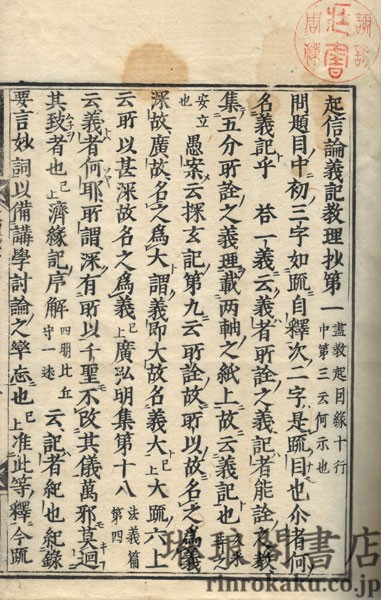 起信論義記教理抄第一 盡教起因緣十行中第三云何示也
問題目中初三字如疏自釋次二字是疏目也尒者何
名義記乎 荅一義云義者所詮之義記者能詮之教
集五分所詮之義理載兩軸之紙上故云義記也
安立也 愚案云探玄記第九云所詮故所以故名之爲義
深故廣故名之爲大謂義即大故名義大上大疏六上
云所以甚深故名之爲義上廣弘明集第十八 法義篇第四
云義者何耶所謂深有所以千聖不改其儀萬邪莫迴
其致者也已上濟緣記序解 四明比丘守一述 云記者紀也紀錄
要言妙詞以備講學討論之率忘也已上准此等釋今疏
琳琅閣書店
rinrokaku.co.jp